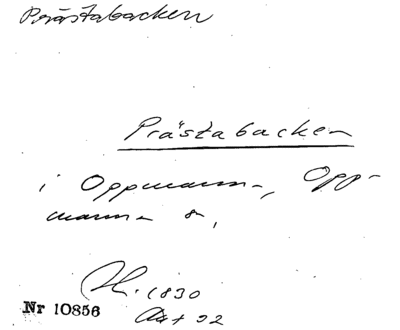 Prästabacken
Prästabacken
i Oppmanna, Opp-
manna s,
H. 1830
Nr 10856